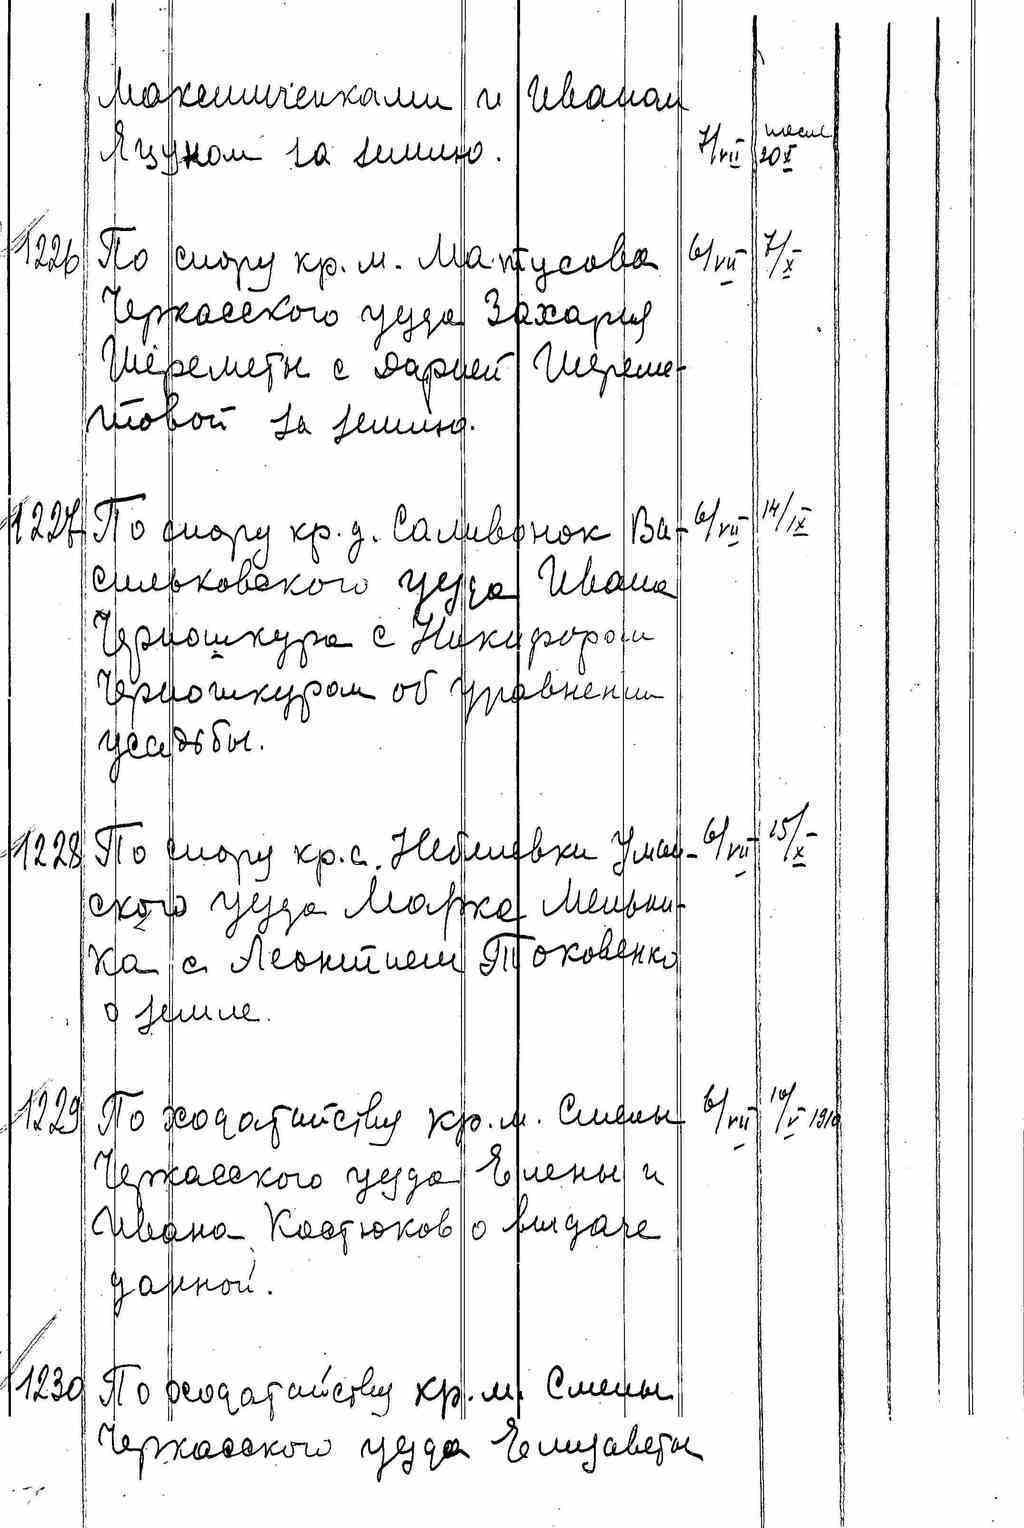 Максимченками и Иваном
Яцуком за землю. 7/VII после 20 X
1226 По спору кр. м. Матусова 6/VII 7/X
Черкасского уезда Захария
Шереметы с Дарией Шереме-
товой за землю.
1227 По спору кр. д. Саливонок Ва- 6/VII 14/IX
сильковского уезда Ивана
Черношкура с Никифором
Черношкуром об уравнении
усадьбы.
1228 По спору кр. с. Небелевки Уман- 6/VII 15/X
ского уезда Марка Мельни-
ка с Леонтием Токовенко
о земле.
1229 По ходатайству кр. м. Смелы 6/VII 10/V 1910
Черкасского уезда Елены и
Ивана Костюков о выдаче
данной.
1230 По ходатайству кр. м. Смелы
Черкасского уезда Елизаветы